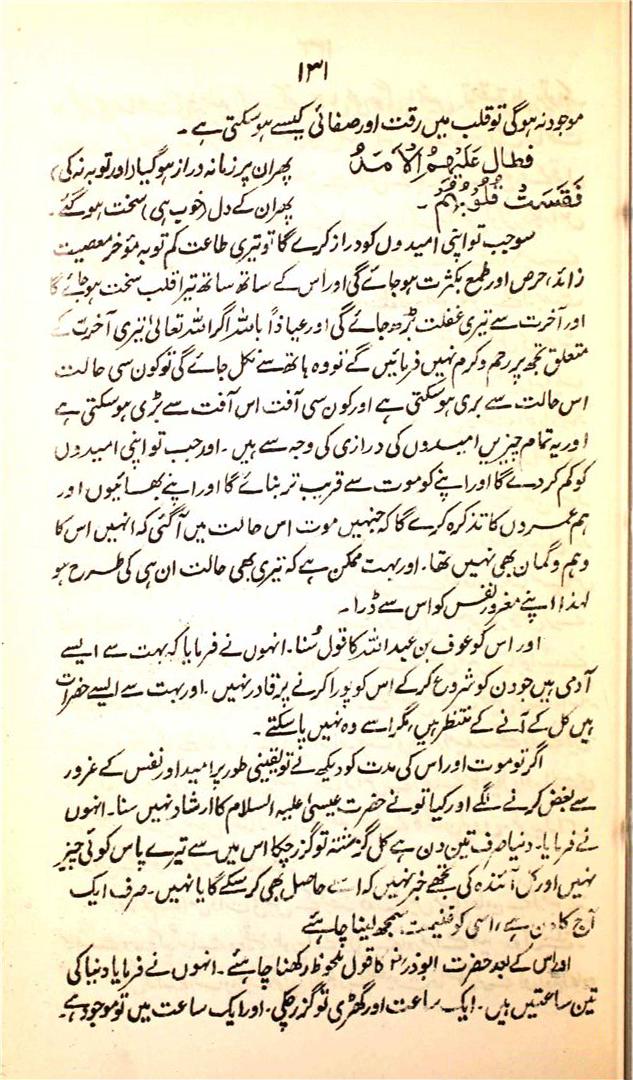 ۱۳۱
موجود نہ ہوگی تو قلب میں رقت اور صفائی کیسے ہوسکتی ہے۔
فَطَالَ عَلَيْهِمُ الْاَمَدُ پھر ان پر زمانہ دراز ہوگیا (اور توبہ نہ کی)
فَقَسَتْ قُلُوْبُهُمْ۔ پھر ان کے دل (خوب ہی) سخت ہوگئے۔
سو جب تو اپنی امیدوں کو دراز کرے گا تو تیری طاعت کم توبہ مؤخر معصیت
زائد، حرص اور طمع بکثرت ہوجائے گی اور اس کے ساتھ ساتھ تیرا قلب سخت ہوجائے گا
اور آخرت سے تیری غفلت بڑھ جائے گی اور عیاذاً باللہ اگر اللہ تعالیٰ تیری آخرت کے
متعلق تجھ پر رحم و کرم نہیں فرمائیں گے تو وہ ہاتھ سے نکل جائے گی تو کون سی حالت
اس حالت سے بری ہوسکتی ہے اور کون سی آفت اس آفت سے بڑی ہوسکتی ہے
اور یہ تمام چیزیں امیدوں کی درازی کی وجہ سے ہیں۔ اور جب تو اپنی امیدوں
کو کم کردے گا اور اپنے کو موت سے قریب تر بنائے گا اور اپنے بھائیوں اور
ہم عمروں کا تذکرہ کرے گا کہ جنہیں موت اس حالت میں آگئی کہ انہیں اس کا
وہم و گمان بھی نہیں تھا۔ اور بہت ممکن ہے کہ تیری بھی حالت ان ہی کی طرح ہو
لہذا اپنے مغرور نفس کو اس سے ڈرا۔
اور اس کو عوف بن عبد اللہ کا قول سُنا۔ انہوں نے فرمایا کہ بہت سے ایسے
آدمی ہیں جو دن کو شروع کرکے اس کو پورا کرنے پر قادر نہیں۔ اور بہت سے ایسے حضرات
ہیں کل کے آنے کے منتظر ہیں، مگر اسے وہ نہیں پاسکتے۔
اگر تو موت اور اس کی مدت کو دیکھ لے تو یقینی طور پر امید اور نفس کے غرور
سے بغض کرنے لگے اور کیا تونے حضرت عیسیٰ علیہ السلام کا ارشاد نہیں سنا۔ انہوں
نے فرمایا۔ دنیا صرف تین دن ہے کل گزشتہ تو گزر چکا اس میں سے تیرے پاس کوئی چیز
نہیں اور کل آئندہ کی تجھے خبر نہیں کہ اسے حاصل بھی کرسکے گا یا نہیں۔ صرف ایک
آج کا دن ہے، اسی کو غنیمت سمجھ لینا چاہئے
اور اس کے بعد حضرت ابوذرؓ کا قول ملحوظ رکھنا چاہئے۔ انہوں نے فرمایا دنیا کی
تین ساعتیں ہیں۔ ایک ساعت اور گھڑی تو گزر چکی۔ اور ایک ساعت میں تو موجود ہے۔